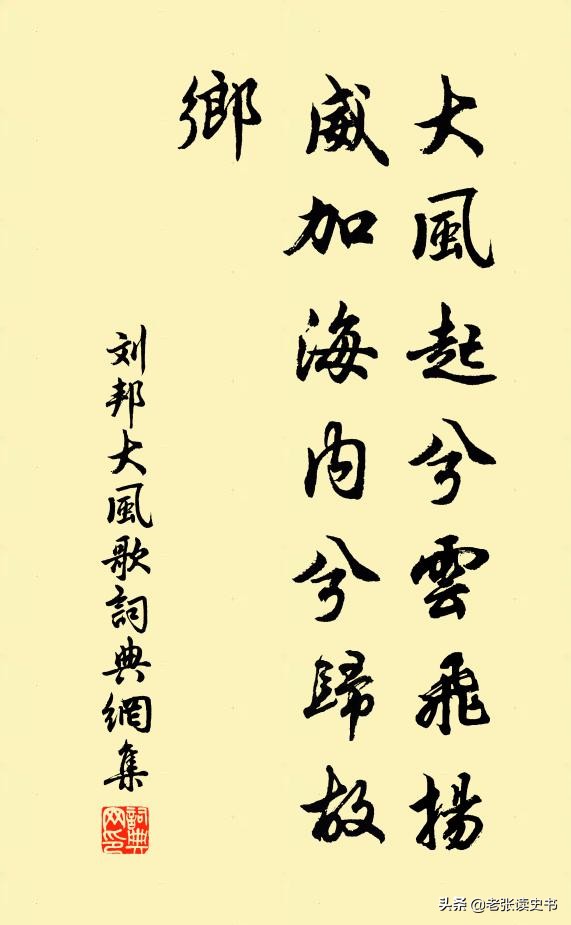 大風起兮雲飛揚
威加海内兮歸故
鄉
刘邦大風歌詞典網集
詞典网印
头条 @老张读史书